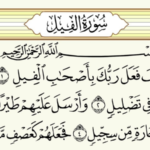 سورة الفيل
بسم الله الرحمن الرحيم
فعل ربك بأصحاب الفيل ١
في تضليل ٢ وأرسل عليهم طيرا
من سجيل ٤ فجعلهم كعصف